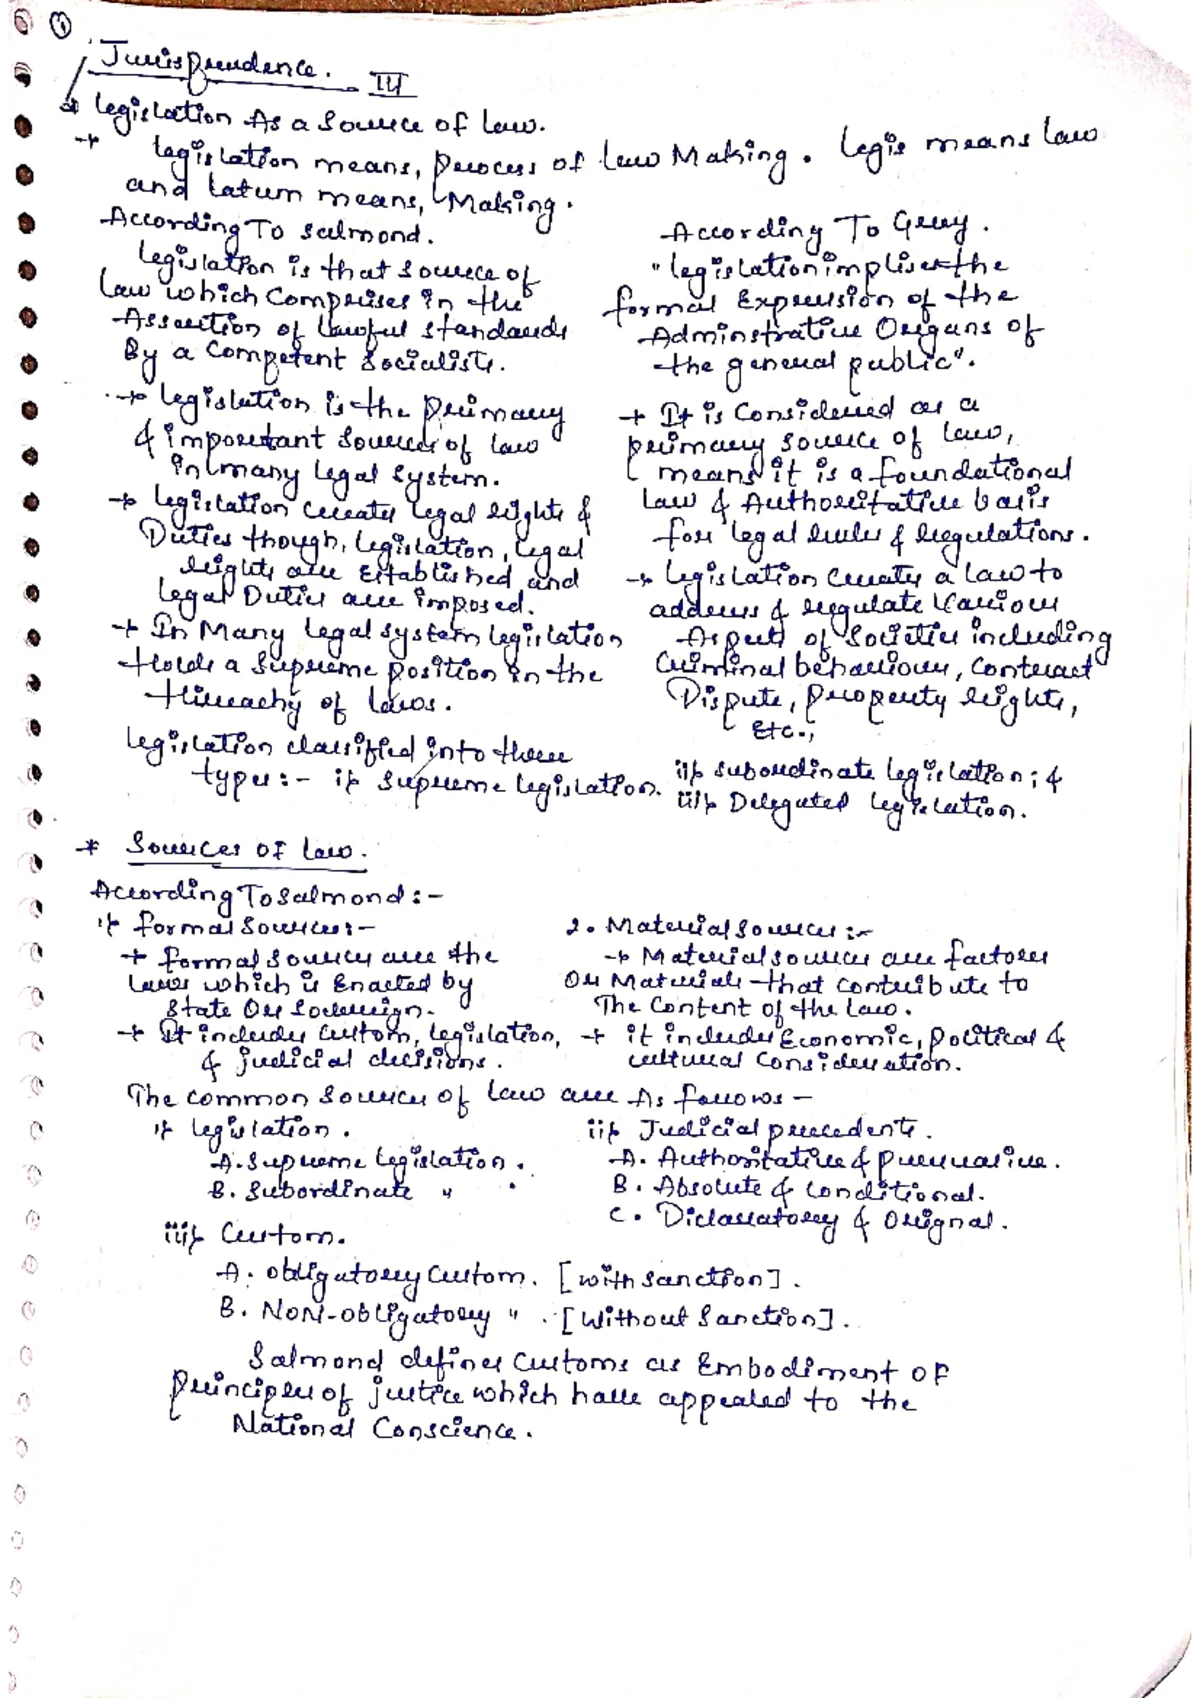 1
Jurisprudence. III
* Legislation As a Source of Law.
→ Legislation means, process of law Making. Legis means law
and Latum means, Making.
According To Salmond.
Legislation is that source of
law which Comprises in the
Assertion of lawful standards
By a Competent Socialists.
→ Legislation is the primary
& important sources of law
in many legal system.
→ Legislation creates legal rights &
Duties though, legislation, legal
rights are Established and
legal Duties are imposed.
→ In Many legal system legislation
Holds a Supreme position in the
Hirearchy of laws.
According To Grey.
"legislation implises the
formal Expression of the
Adminstrative Origans of
the general public".
→ It is Considered as a
primary source of law,
means it is a foundational
law & Authoritative basis
for legal rules & regulations.
→ Legislation creates a law to
address & regulate Various
Aspects of Societies including
Criminal behaviour, contract
Dispute, property rights,
Etc.,
Legislation classified into three
types:- i) Supreme legislation. ii) subordinate legislation; &
iii) Delegated legislation.
* Sources of Law.
According To Salmond:-
1) formal Sources:-
→ formal sources are the
laws which is Enacted by
State Or Soverign.
→ It includes Custom, legislation,
& judicial decisions.
2. Material Sources:-
→ Material sources are factors
Or Materials that contribute to
The Content of the Law.
→ it includes Economic, political &
cultural Consideration.
The common Sources of Law are As follows –
i) Legislation.
A. Supreme Legislation.
B. Subordinate " .
ii) Judicial precedents.
A. Authoritative & persuasive.
B. Absolute & Conditional.
C. Diclaratory & Orignal.
iii) Custom.
A. Obligatory Custom. [with sanction].
B. NON-obligatory " . [Without Sanction].
Salmond defines Customs as Embodiment OF
principles of justice which have appealed to the
National Conscience.